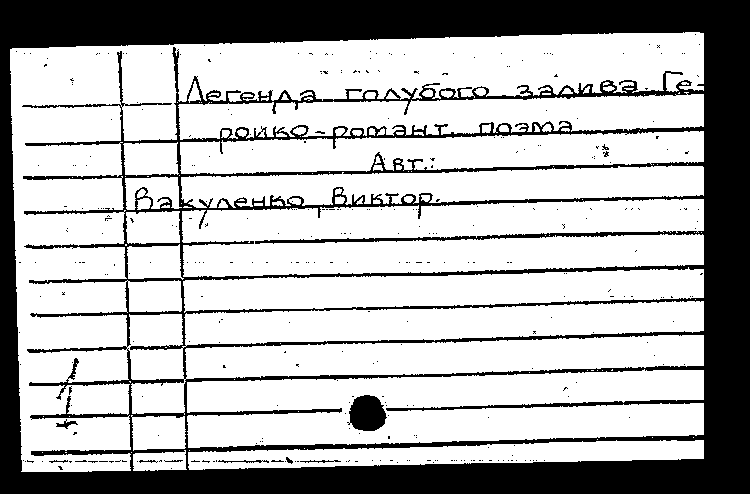 Легенда голубого залива. Ге-
ройко-романт. поэма
Авт.:
Вакуленко, Виктор.
1